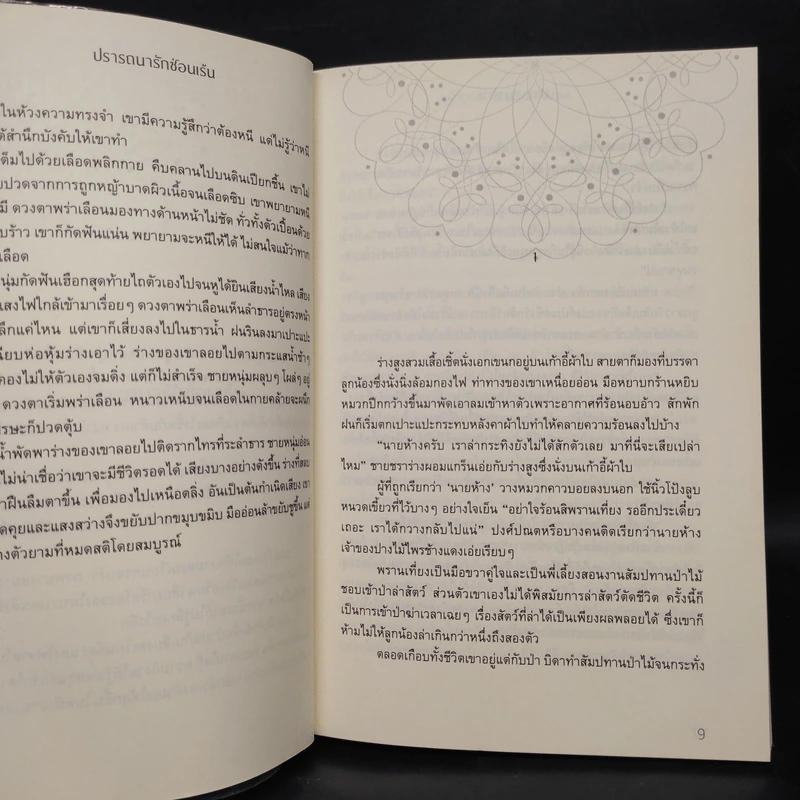 ปรารถนารักซ่อนเร้น
ในห้วงความทรงจำ เขามีความรู้สึกว่าต้องหนี แต่ไม่รู้ว่าหนี
สำนึกบังคับให้เขาทำ
ไปด้วยเลือดพลิกกาย คืบคลานไปบนดินเปียกชื้น เขาไม่
ปวดจากการถูกหญ้าบาดผิวเนื้อจนเลือดซิบ เขาพยายามหนี
มี ดวงตาพร่าเลือนมองทางด้านหน้าไม่ชัด ทั่วทั้งตัวเปื้อนด้วย
ร้าว เขาก็กัดฟันแน่น พยายามจะหนีให้ได้ ไม่สนใจแม้ว่าหาก
เลือด
หนุ่มกัดฟันเฮือกสุดท้ายไถตัวเองไปจนหูได้ยินเสียงน้ำไหล เสียง
แสงไฟใกล้เข้ามาเรื่อยๆ ดวงตาพร่าเลือนเห็นลำธารอยู่ตรงหน้า
ลึกแค่ไหน แต่เขาก็เสี่ยงลงไปในธารน้ำ ฝนรินลงมาเปาะแปะ
ห่อหุ้มร่างเอาไว้ ร่างของเขาลอยไปตามกระแสน้ำช้าๆ
ไม่ให้ตัวเองจมดิ่ง แต่ก็ไม่สำเร็จ ชายหนุ่มผลุบๆ โผล่ๆ อยู่
ดวงตาเริ่มพร่าเลือน หนาวเหน็บจนเลือดในกายคล้ายจะผนึก
ก็ปวดตุ้บ
น้ำพัดพาร่างของเขาลอยไปติดรากไทรที่ระลำธาร ชายหนุ่มอ่อน
ไม่น่าเชื่อว่าเขาจะมีชีวิตรอดได้ เสียงบางอย่างดังขึ้น ร่างที่สลบ
ฝืนลืมตาขึ้น เพื่อมองไปเหนือตลิ่ง อันเป็นต้นกำเนิดเสียง เขา
คุยและแสงสว่างจึงขยับปากขมุบขมิบ มืออ่อนล้าขยับชูขึ้น แต่
ตัวยามที่หมดสติโดยสมบูรณ์
1
ร่างสูงสวมเสื้อเชิ้ตนั่งเอกเขนกอยู่บนเก้าอี้ผ้าใบ สายตาก็มองที่บรรดา
ลูกน้องซึ่งนั่งนิ่งล้อมกองไฟ ท่าทางของเขาเหนื่อยอ่อน มือหยาบกร้านหยิบ
หมวกปีกกว้างขึ้นมาพัดเอาลมเข้าหาตัวเพราะอากาศที่ร้อนอบอ้าว สักพัก
ฝนก็เริ่มตกเปาะแปะกระทบหลังคาผ้าใบทำให้คลายความร้อนลงไปบ้าง
“นายห้างครับ เราล่ากระทิงยังไม่ได้สักตัวเลย มาที่นี่จะเสียเปล่า
ไหม” ชายชราร่างผอมแกร็นเอ่ยกับร่างสูงซึ่งนั่งบนเก้าอี้ผ้าใบ
ผู้ที่ถูกเรียกว่า ‘นายห้าง’ วางหมวกคาวบอยลงบนอก ใช้นิ้วโป้งลูบ
หนวดเขี้ยวที่ไว้บางๆ อย่างใจเย็น “อย่าใจร้อนสิพรานเที่ยง รออีกประเดี๋ยว
เถอะ เราได้กวางกลับไปแน่” ปงศ์ปณตหรือบางคนติดเรียกว่านายห้าง
เจ้าของปางไม้ไพรช้างแดงเอ่ยเรียบๆ
พรานเที่ยงเป็นมือขวาคู่ใจและเป็นพี่เลี้ยงสอนงานสัมปทานป่าไม้
ชอบเข้าป่าล่าสัตว์ ส่วนตัวเขาเองไม่ได้พิสมัยการล่าสัตว์ตัดชีวิต ครั้งนี้ก็
เป็นการเข้าป่าฆ่าเวลาเฉยๆ เรื่องสัตว์ที่ล่าได้เป็นเพียงผลพลอยได้ ซึ่งเขาก็
ห้ามไม่ให้ลูกน้องล่าเกินกว่าหนึ่งถึงสองตัว
ตลอดเกือบทั้งชีวิตเขาอยู่แต่กับป่า บิดาทำสัมปทานป่าไม้จนกระทั่ง
9